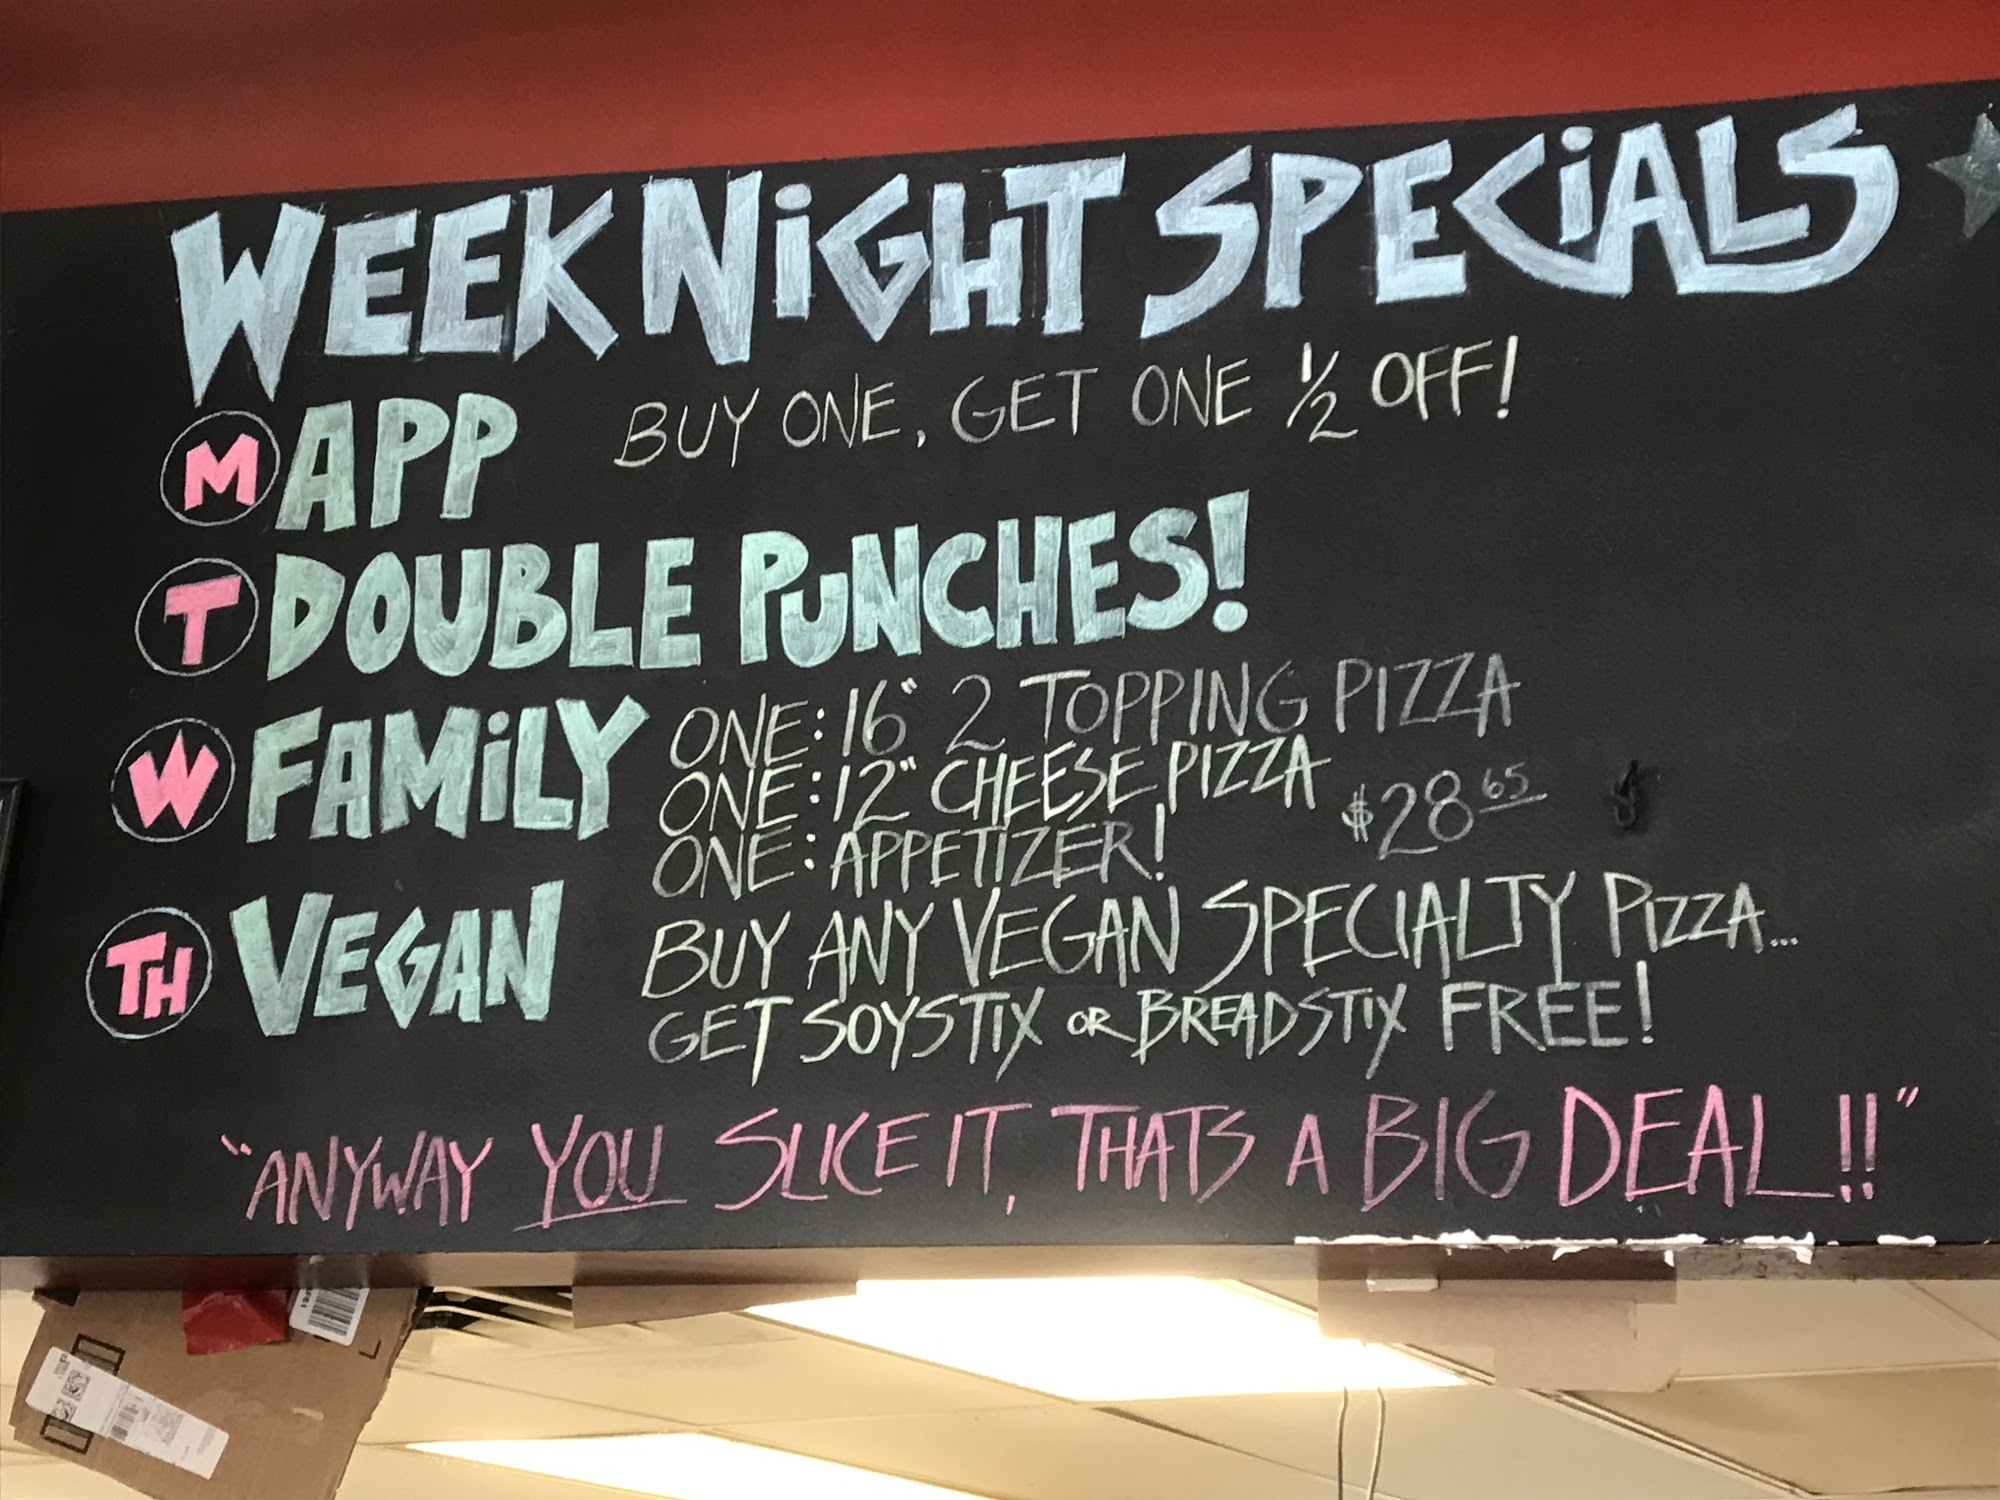 WEEKNiGHT SPECiALS
M APP BUY ONE, GET ONE 1/2 OFF!
T DOUBLE PUNCHES!
W FAMiLY ONE: 16" 2 TOPPING PIZZA
ONE: 12" CHEESE PIZZA $28 65
ONE: APPETIZER!
TH VEGAN BUY ANY VEGAN SPECIALTY PIZZA...
GET SOYSTIX OR BREADSTIX FREE!
"ANYWAY YOU SLICE IT, THATS A BIG DEAL!!"